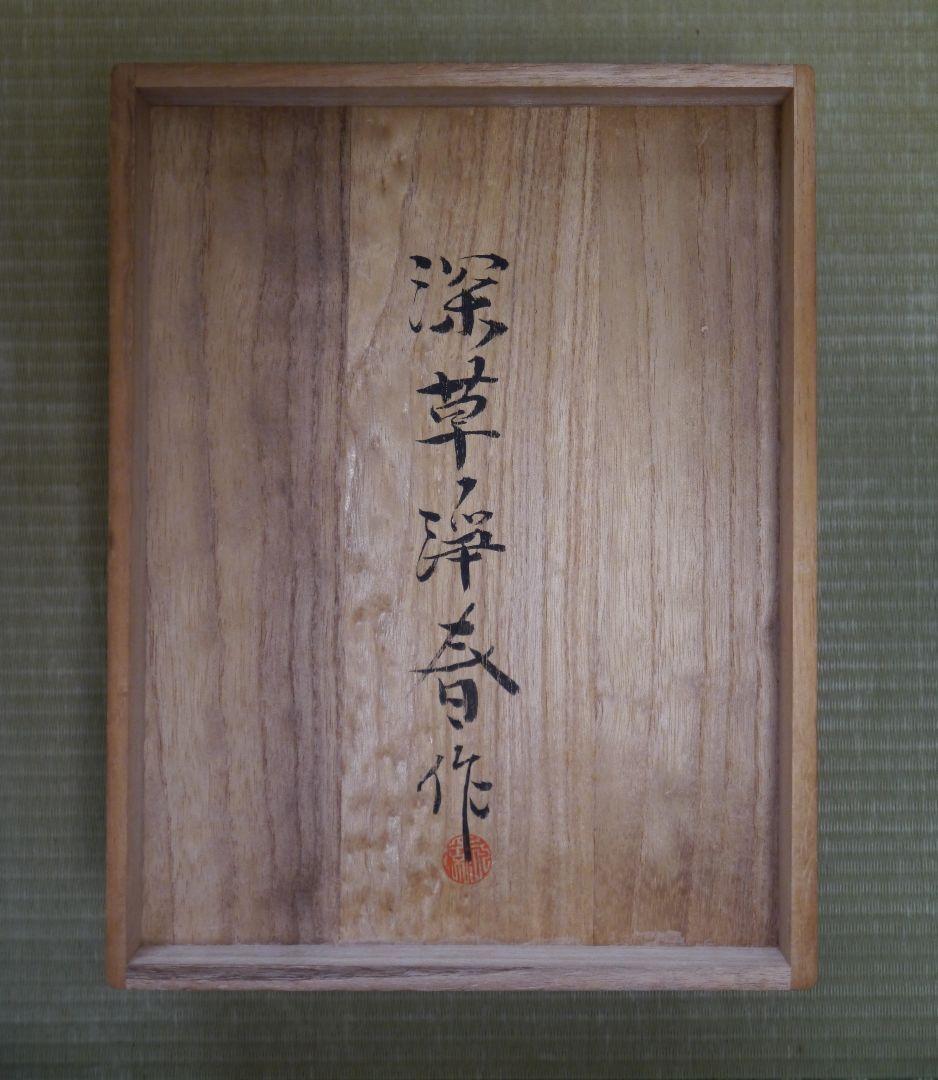 深草淨春作